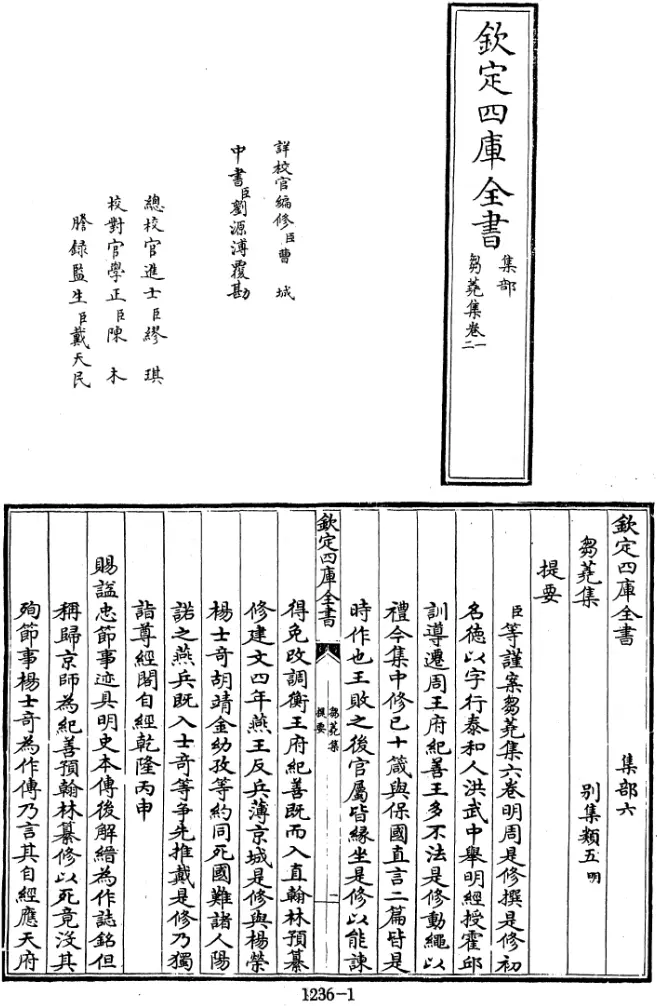 欽定四庫全書
集部
芻蕘集卷一
二
詳校官編修臣曹城
中書臣劉源溥覆勘
總校官進士臣繆琪
校對官學正臣陳木
謄錄監生臣戴天民
欽定四庫全書 集部六
芻蕘集 別集類五明
提要
臣等謹案芻蕘集六卷明周是修撰是修初
名德以字行泰和人洪武中舉明經授霍邱
訓導遷周王府紀善王多不法是修動繩以
禮今集中修已十箴與保國直言二篇皆是
時作也王敗之後官屬皆緣坐是修以能諫
欽定四庫全書
芻蕘集
提要
一
得免改調衡王府紀善既而入直翰林預纂
修建文四年燕王反兵薄京城是修與楊榮
楊士奇胡靖金幼孜等約同死國難諸人陽
諾之燕兵既入士奇等爭先推戴是修乃獨
詣尊經閣自經乾隆丙申
賜諡忠節事迹具明史本傳後解縉為作誌銘但
稱歸京師為紀善預翰林纂修以死竟沒其
殉節事楊士奇為作傳乃言其自經應天府
1236-1